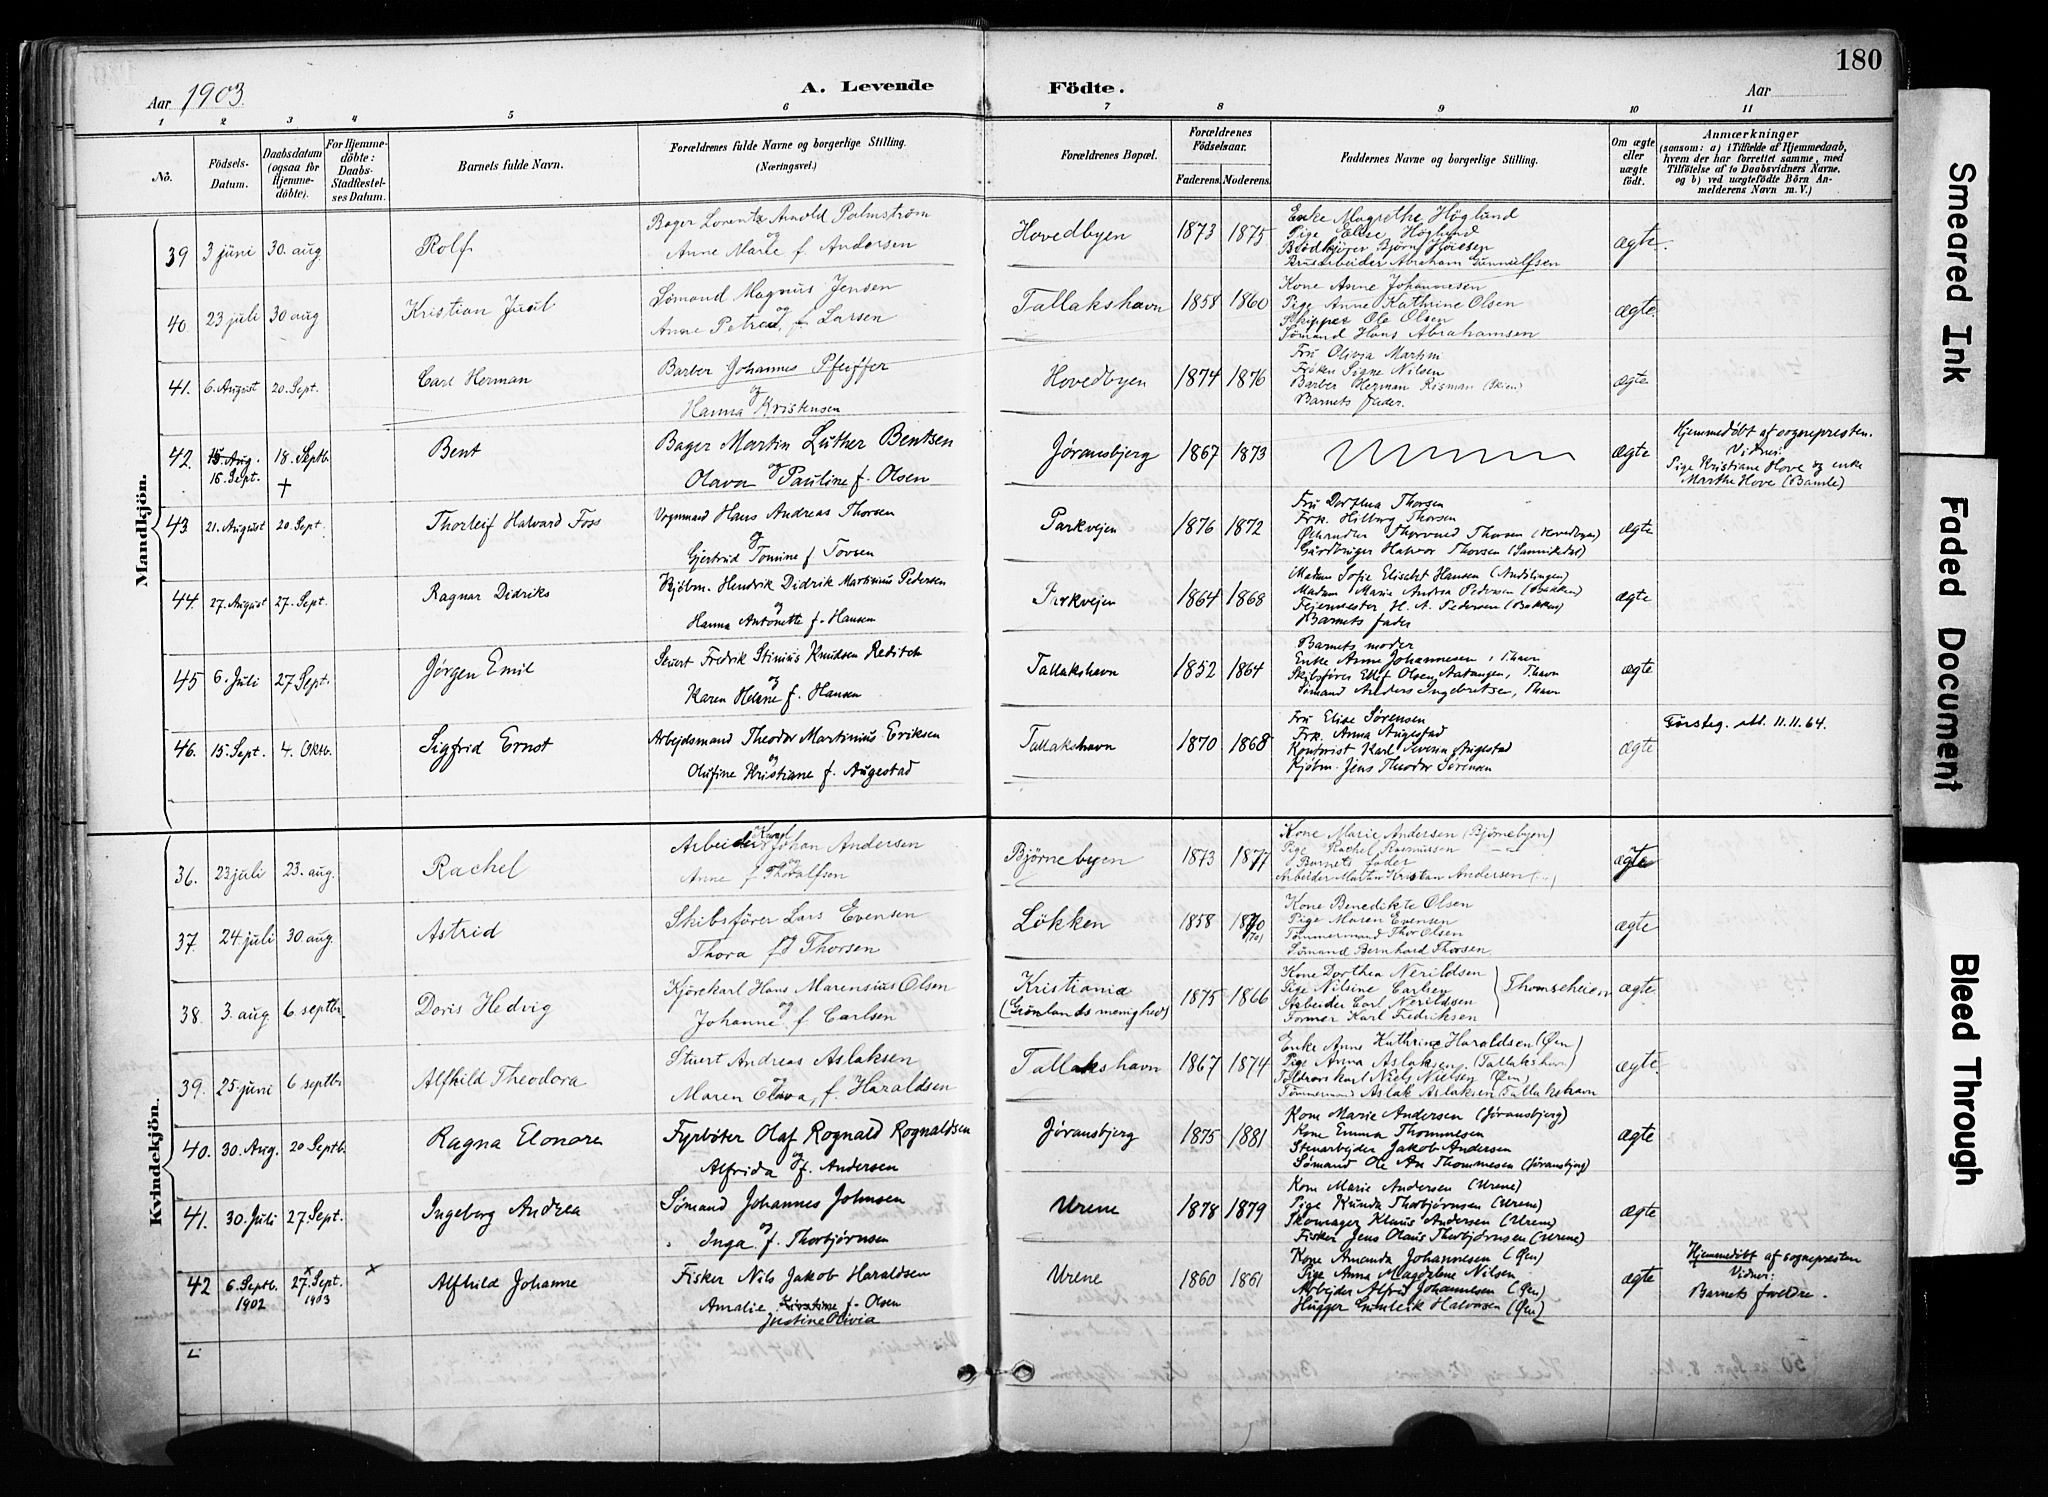 180
Aar 1903.
A. Levende Födte.
Aar
1 2 3 4 5 6 7 8 9 10 11
No.
Födsels-Datum.
Daabsdatum (ogsaa for Hjemme-döbte).
For Hjemme-döbte: Daabs-Stadfæstel-ses Datum.
Barnets fulde Navn.
Forældrenes fulde Navne og borgerlige Stilling. (Næringsvei.)
Forældrenes Bopæl.
Forældrenes Födselsaar.
Faderens. Moderens.
Faddernes Navne og borgerlige Stilling.
Om ægte eller uægte födt.
Anmærkninger
(saasom: a) i Tilfælde af Hjemmedaab, hvem der har forrettet samme, med Tilföielse af to Daabsvidners Navne, og b) ved uægtefödte Börn An-melderens Navn m. V.)
Mandkjön.
39 3 juni 30. aug. Rolf
Bager Lorentz Arnold Palmström
og
Anne Marie f. Andersen
Hovedbyen 1873 1875
Enke Magrethe Höglund
Pige Elise Höglund
Brödkjörer Björn Høiesen
Brusarbeider Abraham Gunnulfsen
ægte.
40 23 juli 30 aug Kristian Juul
Sömand Magnus Jensen
og
Anne Petrea, f. Larsen
Tallakshavn 1858 1860
Kone Anne Johannesen
Pige Anne Kathrine Olsen
Skipper Ole Olsen
Sømand Hans Abrahamsen
ægte.
41. 6. August 20. Sept. Carl Herman
Barber Johannes Pfeiffer
og
Hanna Kristensen
Hovedbyen 1874 1876
Fru Olivia Martini
Frøken Signe Nilsen
Barber Herman Risman (Skien)
Barnets fader.
ægte
42. 15. Aug. 18. Septb. Bent
16. Sept. †
Bager Martin Luther Bentsen
og
Olava Pauline f. Olsen
Jøransbjerg 1867 1873
ægte
Hjemmedøbt af sognepresten.
Vidner:
Pige Kristiane Hove og enke
Marthe Hove (Bamle)
43 21. August 20. Sept. Thorleif Halvard Foss
Vognmand Hans Andreas Thorsen
og
Gjertrud Tomine f. Tovsen
Parkvejen 1876 1872
Fru Dorthea Thorsen
Frk. Hilborg Thorsen
Thorvald Thorsen (Hovedbyen)
Gårdbruger Halvor Thorsen (Sannikedal)
ægte
44. 27. August 27. Sept. Ragnar Didriks
Kjøbm. Hendrik Didrik Martinius Pedersen
og
Hanna Antonette f. Hansen
Parkvejen 1864 1868
Madam Sofie Elisabet Hansen
Madam Marie Andrea Pedersen (Bakken)
Fejermester H. A. Pedersen (Bakken)
Barnets fader
ægte
45 6. Juli 27 Sept. Jørgen Emil
Stuert Fredrik Stinius Knudsen Reditch
og
Karen Helene f. Hansen
Tallakshavn 1852 1864
Barnets moder
Enke Anne Johannesen, Thavn
Skibsfører Ellef Olsen Aatangen, Thavn
Sømand Anders Ingebretsen, Thavn
ægte
46. 15. Sept. 4. Oktb. Sigfrid Ernst
Arbejdsmand Theodor Martinius Eriksen
og
Olufine Kristiane f. Augestad
Tallakshavn 1870 1868
Fru Elise Sørensen
Frk. Anna Augestad
Kontorist Karl Severin Augestad
Kjøbm. Jens Theodor Sørensen
ægte
Førsteg. att. 11.11.64.
Kvindekjön.
36. 23 juli 23. aug. Rachel
Arbeider Karl Johan Andersen
og
Anne f. Thoralfsen
Björnebyen 1873 1877
Kone Marie Andersen (Björnebyen)
Pige Rachel Rasmussen
Barnets fader
Arbeider Martin Kristian Andersen
ægte
37. 24. juli 30. aug. Astrid
Skibsfører Lars Evensen
og
Thora f. Thorsen
Lökken 1858 1870
(70)
Kone Benedikte Olsen
Pige Maren Evensen
Tömmermand Thor Olsen
Sömand Bernhard Thorsen
ægte
38. 3. aug. 6 septbr. Doris Hedvig
Kjörekarl Hans Marensius Olsen
og
Johanne f. Carlsen
Kristiania
(Grönlands menighed)
1875 1866
Kone Dorthea Nerildsen
Pige Nilsine Carlsen
Arbeider Carl Nerildsen
Former Karl Fredriksen
Thomseheien
ægte.
39. 25. juni 6 septbr Alfhild Theodora
Stuert Andreas Aslaksen
og
Maren Olava, f. Haraldsen
Tallakshavn 1867 1874
Enke Anne Kathrine Haraldsen (Øen)
Pige Anna Aslaksen (Tallakshavn)
Toldrorskarl Niels Nielsen (Øen)
Tömmermand Aslak Aslaksen (Tallakshavn
ægte.
40. 30. Aug. 20 Septb. Ragna Elonore
Fyrbøter Olaf Rognald Rognaldsen
og
Alfrida f. Andersen
Jøransbjerg 1875 1881
Kone Marie Andersen (Jøransbjerg)
Kone Emma Thommesen
Stenarbejder Jakob Andersen
Sømand Ole Ax Thommesen (Jøransbjerg)
ægte
41. 30. Juli 27. Sept. Ingeborg Andrea
Sømand Johannes Johnsen
og
Inga f. Thorbjørnsen
Urene 1878 1879
Kone Marie Andersen (Urene)
Pige Kunda Thorbjørnsen (Urene)
Skomager Klaus Andersen (Urene)
Fisker Jens Olaus Thorbjørnsen (Urene)
ægte
42 6. Septb. 27. Sept. Alfhild Johanne
1902 1903
Fisker Nils Jakob Haraldsen
Amalie Kirstine f. Olsen
Justine Olivia
Urene 1860 1861
Kone Amanda Johannesen (Øen)
Pige Anna Magdalene Nilsen
Arbejder Alfred Johannesen (Øen)
Hugger Gunleik Halvorsen (Øen)
ægte
Hjemmedøbt af sognepresten
Vidner:
Barnets foreldre.
Smeared Ink
Faded Document
Bleed Through